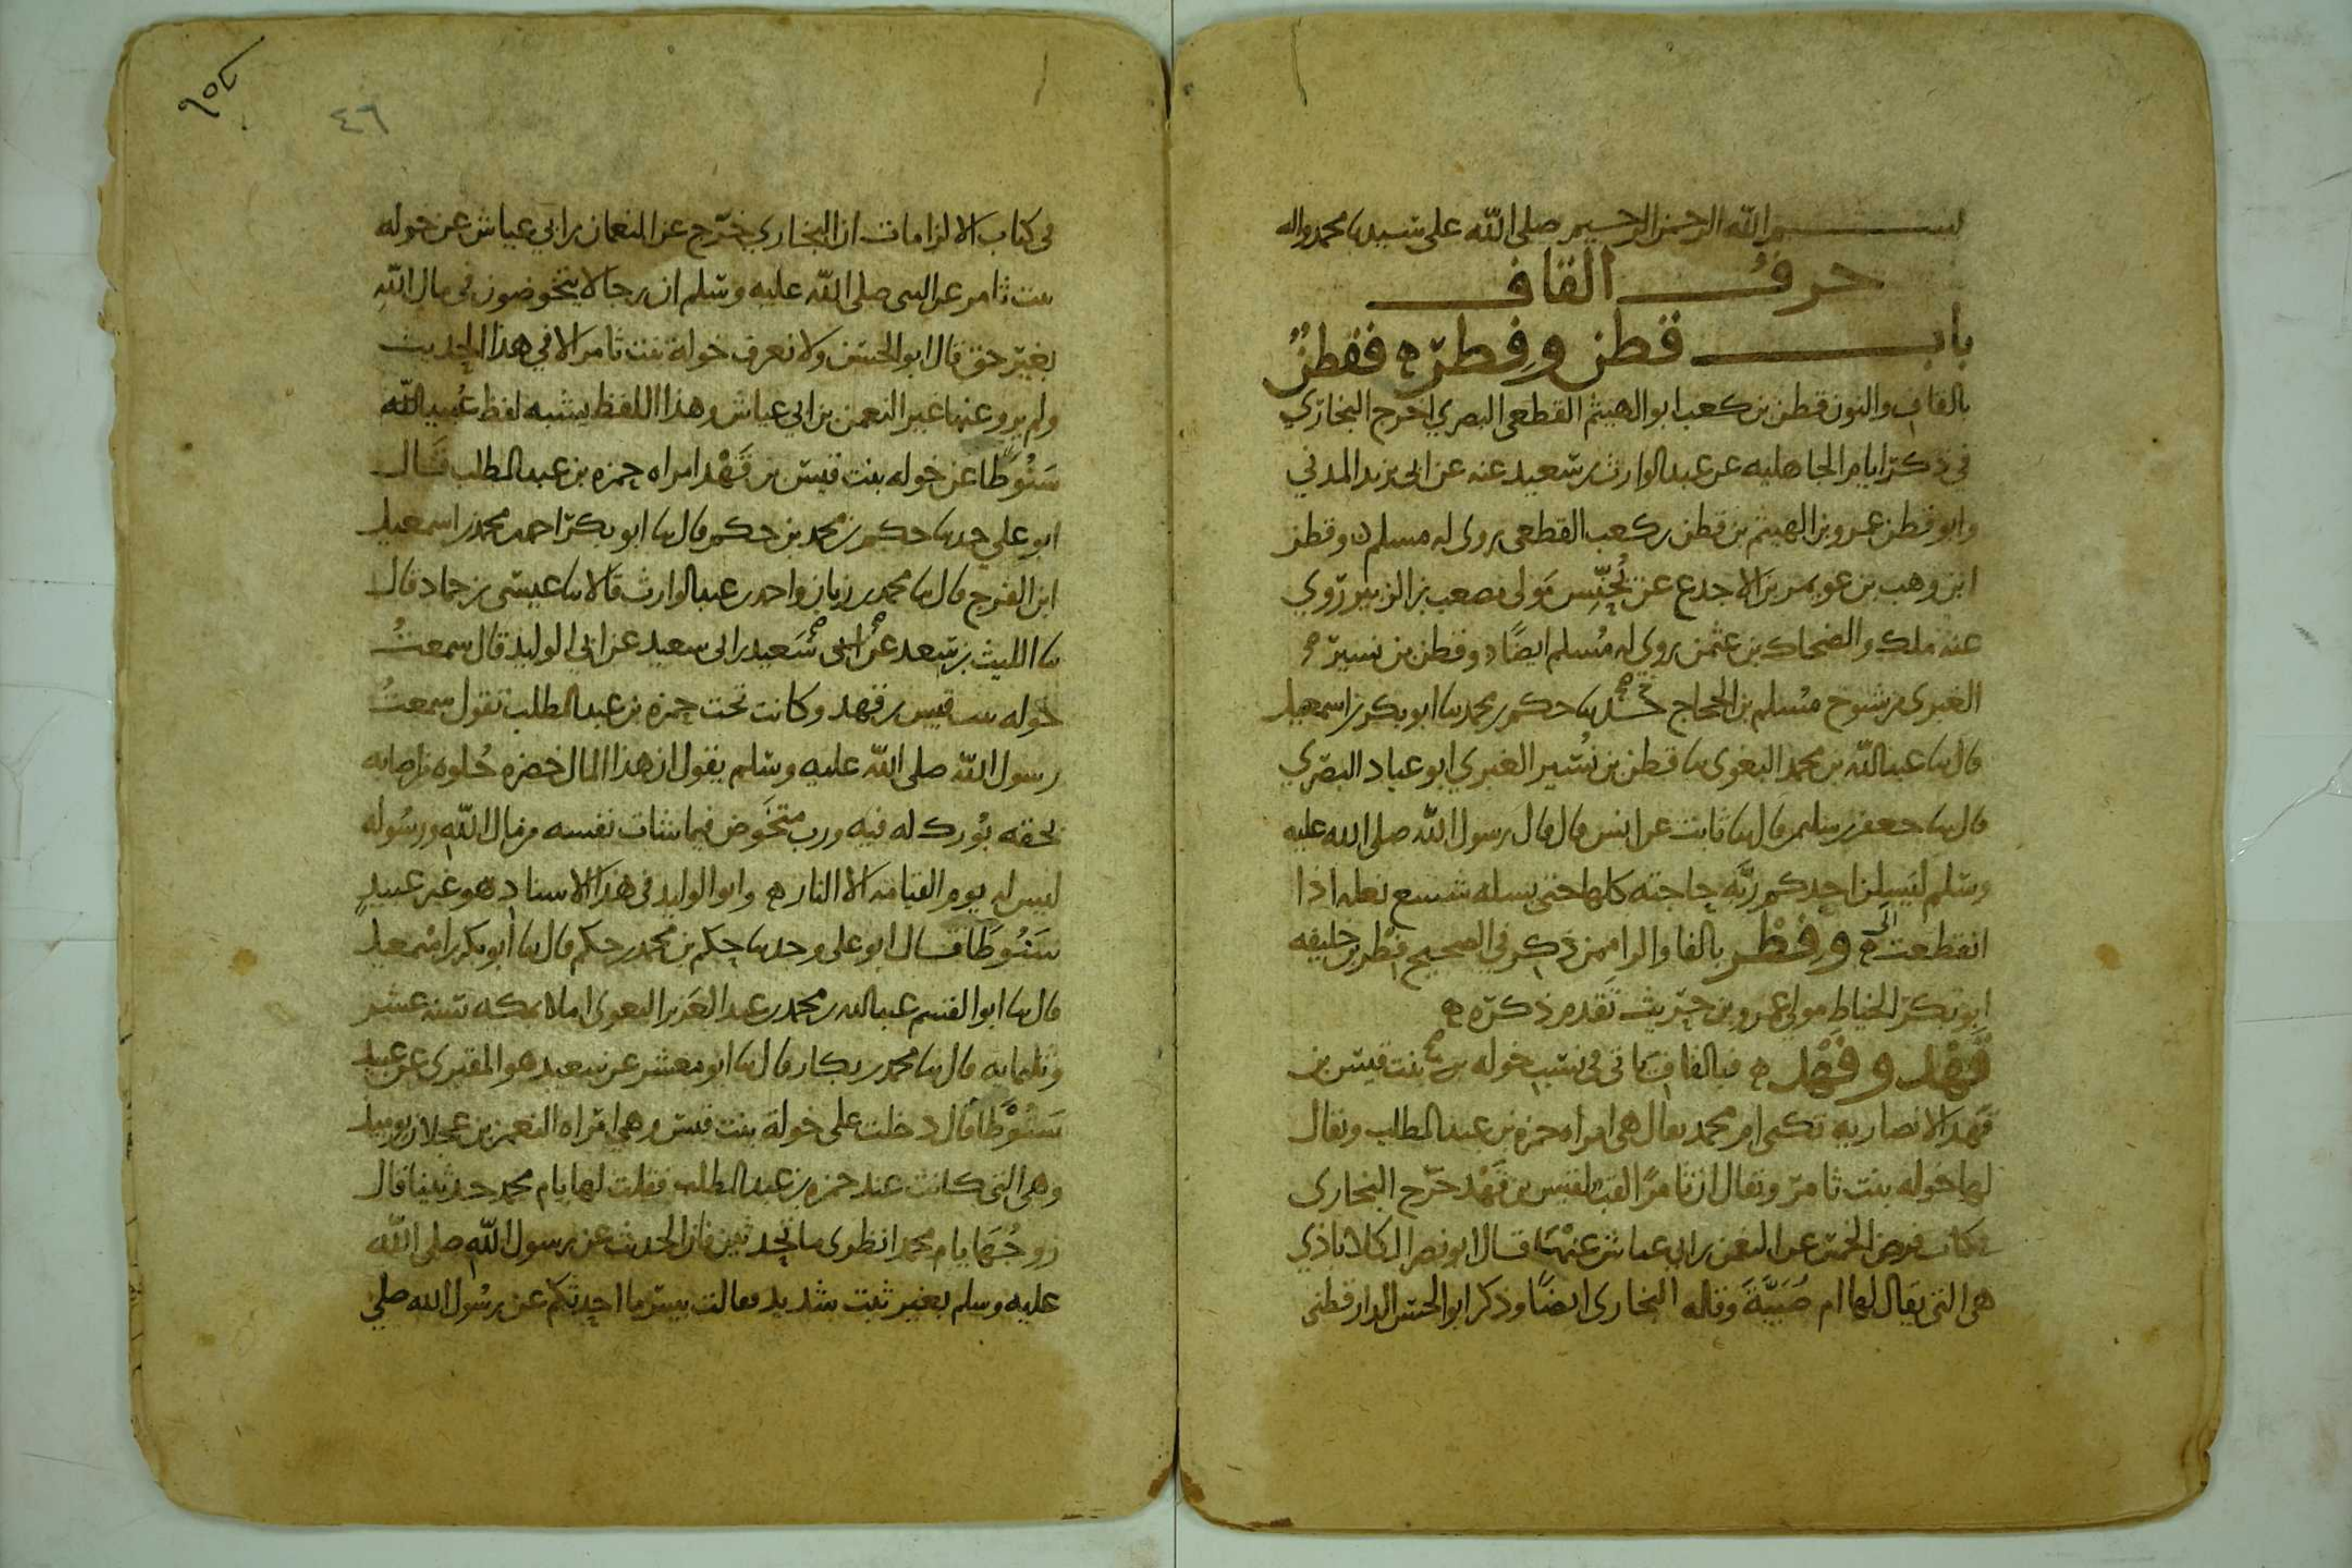 بســـــــم الله الرحمن الرحيم صلى الله على سيدنا محمد واله
حرف القاف
باب قطن وفطر ه فقطن
بالقاف والنون قطن بن كعب ابو الهيثم القطعي البصري اخرج البخاري
في ذكر ايام الجاهليه عن عبد الوارث بن سعيد عنه عن ابي يزيد المدني
وابو قطن عمرو بن الهيثم بن قطن بن كعب القطعي روى له مسلم ه وقطن
ابن وهب بن عويمر بن الاجدع عن يُحَنِّس مَولى مصعب بن الزبير روي
عنه ملك والضحاك بن عثمن روى له مُسلم ايضًا ه وقطن بن نسير
الغبرى من شيوخ مُسلم بن الحجاج حدثنا حكم بن محمد نا ابو بكر بن اسمعيل
قال نا عبد الله بن محمد البغوى نا قطن بن نُسَير الغبري ابو عباد البصري
قال نا جعفر بن سليمن قال نا ثابت عن انس قال قال رسول الله صلى الله عليه
وسلم ليَسِلن احدكم ربَّه حاجته كلها حتى يسله شسع نعله اذا
انقطعت ه وفِطْر بالفا والرا ممن ذكر في الصحيح فِطر بن خليفه
ابو بكر الخياط مولى عمرو بن حريث تقدم ذكره ه
قَهْد وفَهْد ه فبالقاف ياتي في نسب خوله بنت قيس بن
قَهد الانصاريه تكنى ام محمد يقال هي امراه حمزه بن عبد المطلب ويقال
لها خوله بنت ثامر ويقال ان ثامرًا لقب لقيس بن قَهْد خرج البخارى
في كتاب فرض الخمس عن النعمن بن ابي عياش عنها قال ابو نصر الكلاباذي
هى التى يقال لها ام صُبَيَّةَ وقاله البخارى ايضًا وذكر ابو الحسن الدارقطنى
فى كتاب الالزامات ان البخاري خرّج عن النعمان بن ابي عياش عن خوله
بنت ثامر عن النبى صلى الله عليه وسلم ان رجالا يتخوضون في مال الله
بغير حق قال ابو الحسن ولا نعرف خولة بنت ثامر الا في هذا الحديث
ولم يرو عنها غير النعمن بن ابي عياش وهذا اللفظ يشبه لفظ عُبيد الله
سَنُوطَا عن خوله بنت قيس بن قَهْد امراه حمزه بن عبد المطلب قال
ابو علي حدثنا حكم بن محمد بن حكم قال نا ابو بكر احمد بن محمد بن اسمعيل
ابن الفرج قال نا محمد بن زبان واحمد بن عبد الوارث قالا نا عيسى بن حماد قال
نا الليث بن سعد عن سَعيد بن ابى سعيد عن ابي الوليد قال سمعتُ
خوله بنت قيس بن قهد وكانت تحت حمزه بن عبد المطلب تقول سمعتُ
رسول الله صلى الله عليه وسلم يقول ان هذا المال خضره حُلوه من اصابه
بحقه بُورك له فيه ورب متخَوض فيما شات نفسه من مال الله ورسوله
ليس له يوم القيامه الا النار ه وابو الوليد في هذا الاسناد هو غير عبيد
سَنُوطَا قال ابو على وحدثنا حكم بن محمد بن حكم قال نا أبو بكر بن اسمعيل
قال نا ابو القسم عبد الله بن محمد بن عبد العزيز البغوى املا بمكه سنه عشر
وثلثمايه قال نا محمد بن بكار قال نا ابو معشر عن سعيد هو المقبرى عن عبيد
سَنُوطَا قال دخلت على خولة بنت قيس وهي امراه النعمن بن عجلان يوميذ
وهى التى كانت عند حمزه بن عبد المطلب فقلت لها يام محمد حدثينا قال
زوجُهَا يام محمد انظرى ما تحدثين فان الحديث عن رسول الله صلى الله
عليه وسلم بغير ثبت شديد فقالت بيس ما احدثكم عن رسول الله صلي
٤٦